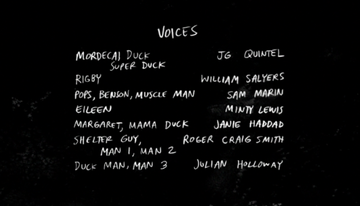 VOICES
MORDECAI DUCK JG QUINTEL
SUPER DUCK
RIGBY WILLIAM SALYERS
POPS, BENSON, MUSCLE MAN SAM MARIN
EILEEN MINTY LEWIS
MARGARET, MAMA DUCK JANIE HADDAD
SHELTER GUY, ROGER CRAIG SMITH
MAN 1, MAN 2
DUCK MAN, MAN 3 JULIAN HOLLOWAY